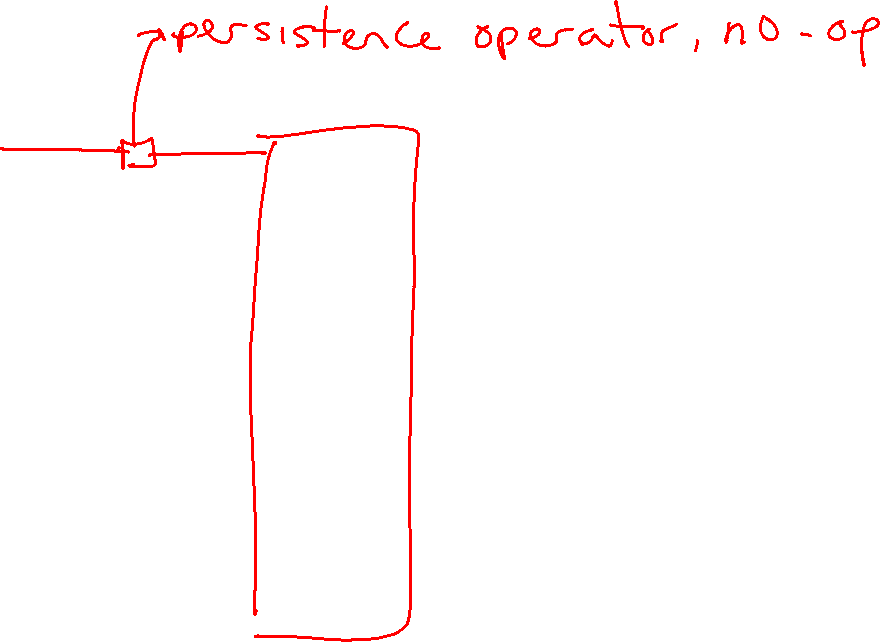 persistence operator, no-op